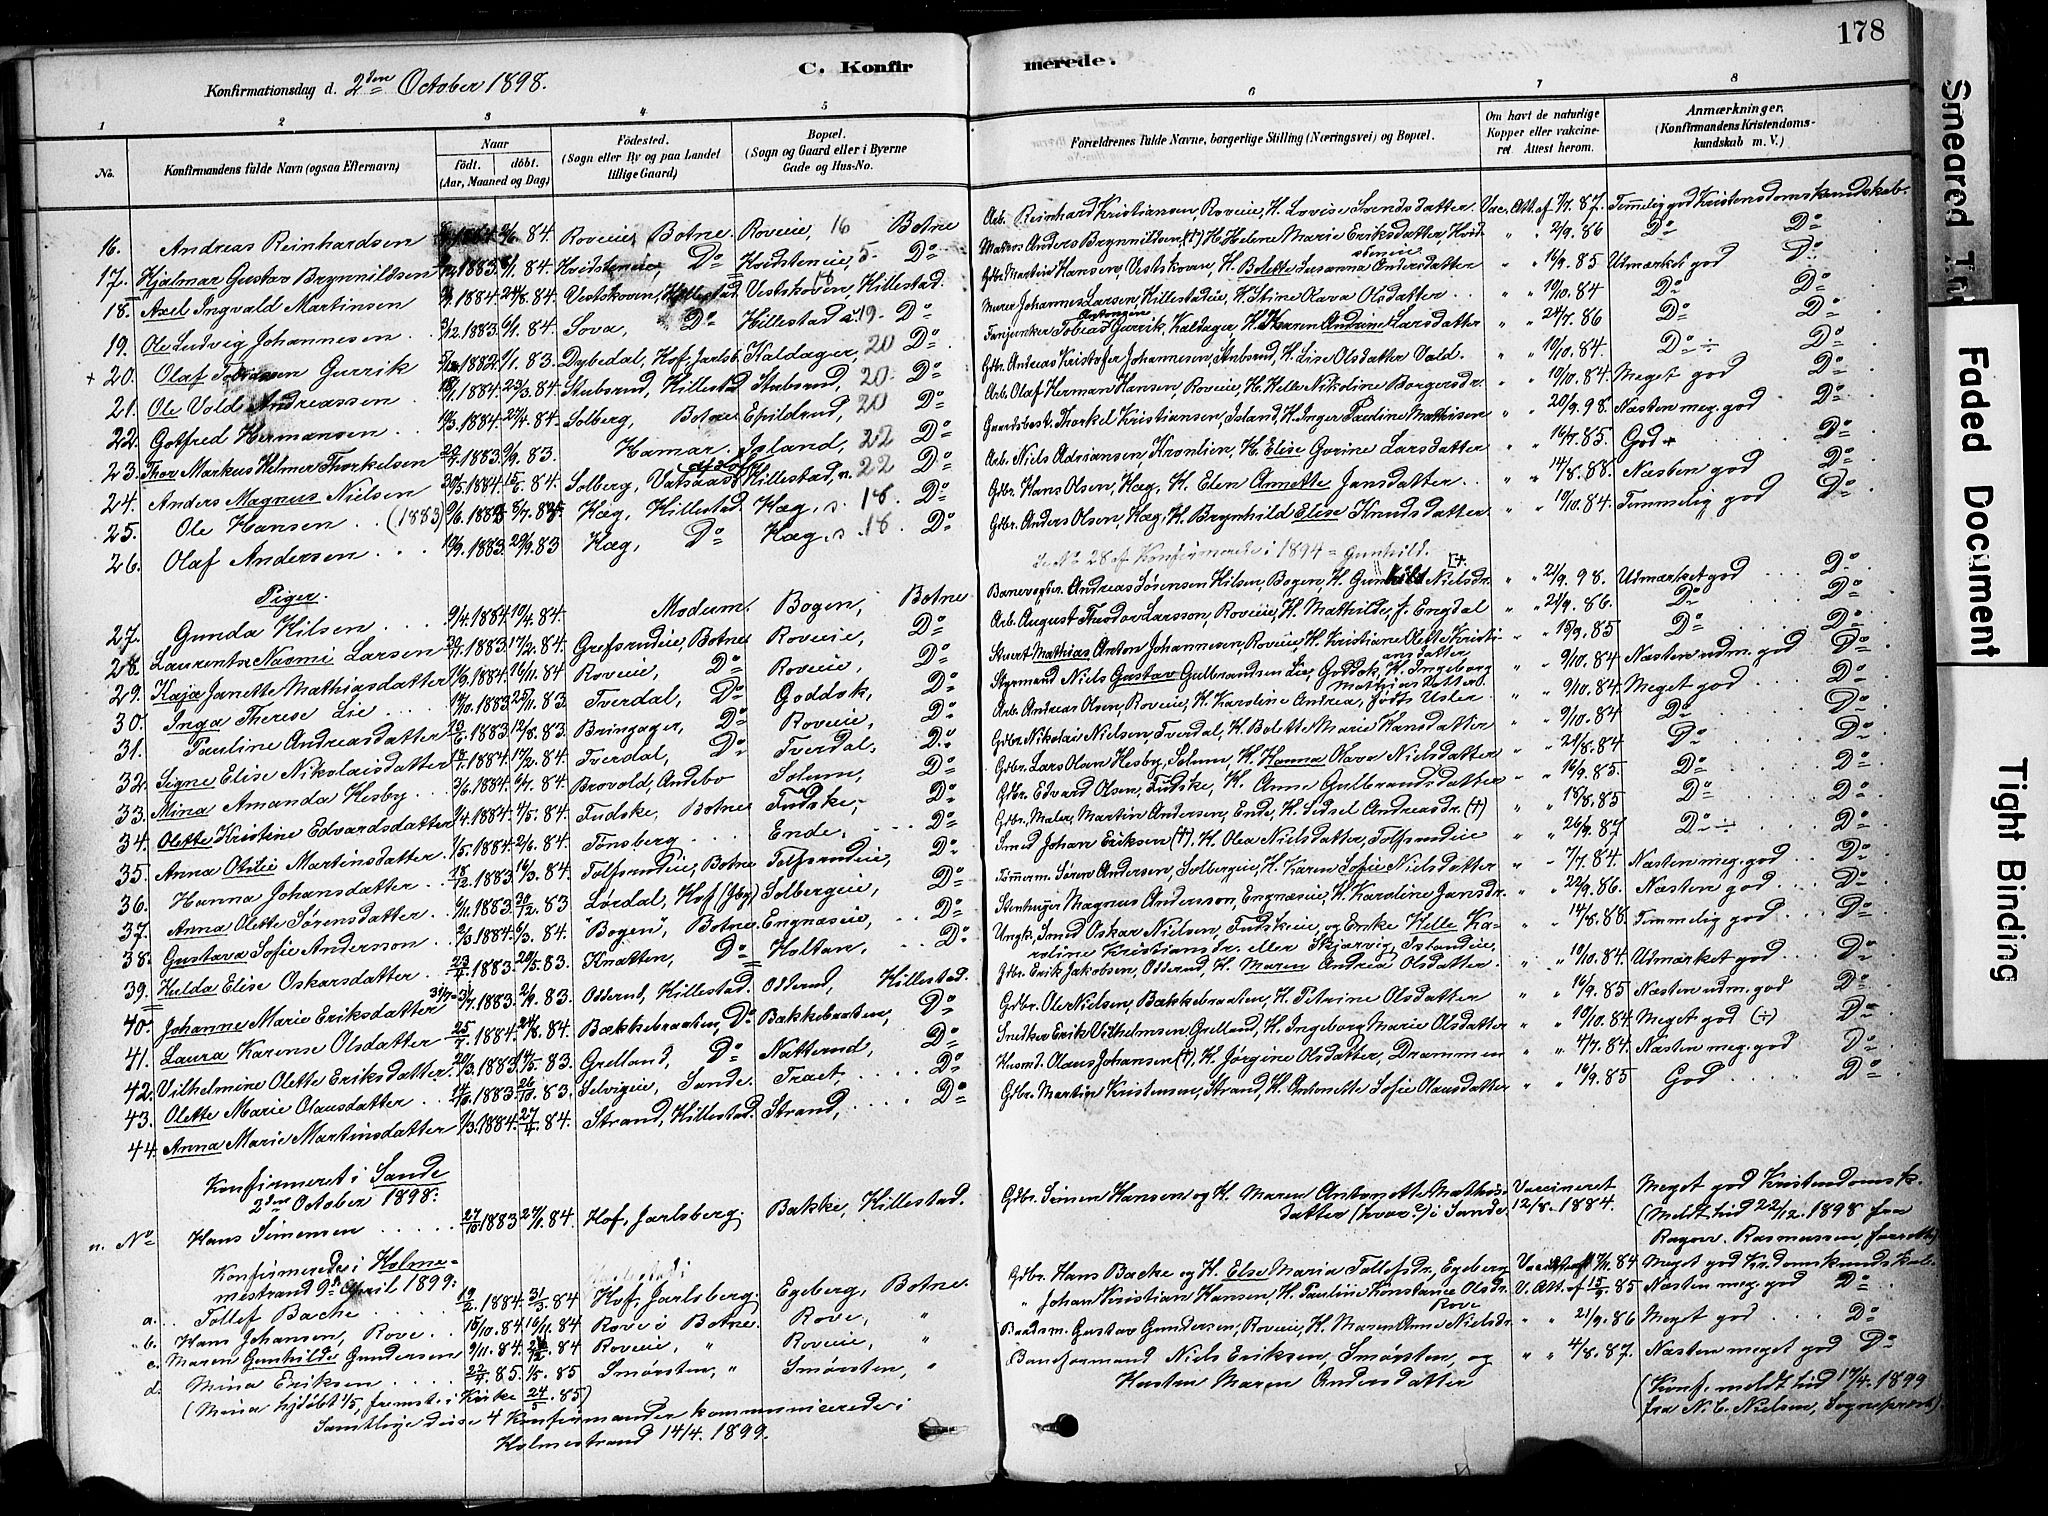 178
C. Konfirmerede.
Konfirmationsdag d. 2den October 1898.
1 2 3 4 5 6 7 8
No. Konfirmandens fulde Navn (ogsaa Efternavn)
Naar født. døbt. (Aar, Maaned og Dag)
Fødested. (Sogn eller By og paa Landet tillige Gaard)
Bopæl. (Sogn og Gaard eller i Byerne Gade og Hus-No.
Forældrenes fulde Navne, borgerlige Stilling (Næringsvei) og Bopæl.
Om havt de naturlige Kopper eller vaccineret. Attest herom.
Anmærkninger. (Konfirmandens Kristendomskundskab m. V.)
16. Andreas Reinhardsen 1884 2/6. 84. Roveie, Botne. Roveie, 16 Botne Arb. Reinhard Kristiansen, Roveie, H. Lovise Svendsdatter Vac. Att. af 7/7. 87. Temmelig god Kristendomskundskab.
17. Hjalmar Gustav Brynnildsen 1883. 6/1. 84. Hvidsteneie, Do Hvidsteneie, 5. Do Matros Anders Brynnildsen, (†) H. Helene Marie Eriksdatter, Hvidsteneie " " 2/9. 86 Do Do
18. Axel Ingvald Martinsen 1884. 24/8. 84. Vestskoven, Hillestad. Vestskoven, 18 Hillestad. Gdbr. Martin Hansen, Vestskoven, H. Bolette Susanna Andersdatter " " 16/9. 85 Udmærket god Do
19. Ole Ludvig Johannesen 3/12. 1883. 6/1. 84. Sova, Do Hillestad 19. Do Murer Johannes Larsen, Hillestadeie, H. Stine Olava Olsdatter " " 10/10. 84 Do Do
+ 20. Olaf Tobiasen Gurrik 1882. 1/1. 83. Dybedal, Hof, Jarlsb. Kaldager, 20 Do Fanejunker Tobias Gurrik, Kaldager, H. Karen Andrine Larsdatter " " 24/7. 86 Do Do
21. Ole Vold Andreassen 1884. 23/3. 84. Stubsrud, Hillestad Stubsrud, 20. Do Gdbr. Andreas Kristofer Johannesen, Stubsrud, H. Lise Olsdatter Vold. " " 10/10. 84. Do ÷ Do
22. Gotfred Hermansen 19/3. 1884. 27/4. 84. Solberg, Botne Eivildrud, 20 Do Arb. Olaf Herman Hansen, Roveie, H. Helle Nikoline Borgersdr. " " 10/10. 84. Meget god Do
23. Thor Markus Helmer Thorkelsen 1883. 9/9. 83. Hamar. Island, 22 Do Gaardsbest. Thorkel Kristiansen, Island, H. Inger Pauline Mathisen " " 20/9. 98. Næsten meg. god Do
24. Anders Magnus Nielsen 20/5. 1884. 15/6. 84. Solberg, Vatsaas Hillestad, n. 22 Do Arb. Niels Adriansen, Kronlien, H. Elise Gurine Larsdatter " " 16/7. 85. God + Do
25. Ole Hansen (1883) 9/6. 1883 5/7. 83. Hæg, Hillestad. Hæg, s. 18. Do Gdbr. Hans Olsen, Hæg, H. Elen Annette Jansdatter " " 14/8. 88. Næsten god Do
26. Olaf Andersen 10/9. 1883. 29/9. 83 Hæg, Do Hæg, s. 18. Do Gdbr. Anders Olsen, Hæg, H. Brynhild Elise Knudsdatter " " 10/10. 84. Temmelig god Do
Se No 28 af Konfirmerede i 1894 = Gunhild.
Piger.
27. Gunda Hilsen 9/4. 1884. 19/4. 84. Modum. Bogen, Botne Banevogter Andreas Sørensen Hilsen, Bogen, H. Gunhild Nielsdr. " " 21/9. 98. Udmærket god Do
28. Laurentze Naomi Larsen 1883. 17/2. 84. Grefsrudeie, Botne Roveie, Do Arb. August Theodor Larsson, Roveie, H. Mathilde, f. Engdal " " 21/9. 86. Do Do
29. Kaja Janette Mathiasdatter 1884. 16/11. 84. Roveie, Do Roveie, Do Stuert Mathias Anton Johannesen, Roveie, H. Kristiane Olette Kristiansdatter " " 15/9. 85 Do Do
30. Inga Therese Lie 1883 25/11. 83. Tverdal, Do Goddok, Do Styrmand Niels Gustav Gulbrandsen Lie, Goddok, H. Ingeborg Mathiasdatter " " 9/10. 84 Næsten udm. god Do
31. Pauline Andreasdatter 1883. 12/8. 83. Bringager, Do Roveie, Do Arb. Andreas Olsen, Roveie, H. Karoline Andrea, født Usler. " " 9/10. 84 Meget god Do
32. Signe Elise Nikolaisdatter 1884. 17/2. 84. Tverdal, Do Tverdal, Do Gdbr. Nikolai Nielsen, Tverdal, H. Bolette Marie Hansdatter " " 9/10. 84 Do Do
33. Mina Amanda Hesby 3/6. 1884. 6/7. 84. Brovold, Andebo Solum, Do Gdbr. Lars Olsen Hesby, Solum, H. Hanna Olava Nielsdatter " " 21/8. 84 Do Do
34. Olette Kristine Edvardsdatter 1/4. 1884. 4/5. 84. Fudske, Botne Fudske, Do Gdbr. Edvard Olsen, Fudske, H. Anne Gulbrandsdatter " " 16/9. 85. Do Do
35. Anna Otilie Martinsdatter 1/5. 1884. 2/6. 84. Tønsberg Ende, Do Gdbr. Maler, Martin Andersen, Ende, H. Sidsel Andreasdr. (†) " " 18/8. 85 Do Do
36. Hanna Johansdatter 18/12. 1883 16/3. 84. Tolfsrudeie, Botne Tolfsrudeie, Do Smed Johan Eriksen (†), H. Olea Nielsdatter, Tolfsrudeie " " 26/9. 87 Do ÷ Do
37. Anna Olette Sørensdatter 6/11. 1883 20/12. 83 Lørdal, Hof (Jbg) Solbergeie, Do Tømmerm. Søren Andersen, Solbergeie, H. Karen Sofie Nielsdatter " " 7/7. 84. Næsten meg. god Do
38. Gustava Sofie Andersson 2/3. 1884 6/3. 84. "Bogen", Botne Engnæseie, Do Stenhugger Magnus Andersson, Engnæseie, H. Karoline Jansdr. " " 22/9. 86. Næsten god Do
39. Hulda Elise Oskarsdatter 1883. 20/5. 83. Knatten, Do Holtan, Do Ungk. Smed Oskar Nielsen, Fudskeie, og Enke Helle Karoline Kristiansdr. eller Skjærvig, Islandeie, " " 14/8. 88. Temmelig god Do
40. Johanne Marie Eriksdatter 1883. 2/9. 83. Odderud, Hillestad. Odderud, Hillestad. Gdbr. Erik Jakobsen, Odderud, H. Maren Andrea Olsdatter. " " 10/10. 84. Udmærket god Do
41. Laura Karense Olsdatter 1884. 24/8. 84. Bækkebraaten, Do Bakkebraaten, Do Gdbr. Ole Nielsen, Bækkebraaten, H. Petrine Olsdatter " " 16/9. 85 Næsten udm. god Do
42. Vilhelmine Olette Eriksdatter 20/3. 1883 14/5. 83. Grelland, Do Natterud, Do Snedker Erik Vilhelmsen Grelland, H. Ingeborg Marie Olsdatter " " 10/10. 84. Meget god (÷) Do
43. Olette Marie Olausdatter 1883 26/8. 83. Selvigeie, Sande. Traet, Do Husmd. Olaus Johansen (†), H. Jørgine Olsdatter, Drammen " " 4/7. 84. Næsten meg. god Do
44. Anna Marie Martinsdatter 1/3. 1884. 27/4. 84. Strand, Hillestad. Strand, Do Gdbr. Martin Kristensen, Strand, H. Antonette Sofie Olausdatter " " 16/9. 85 God Do
Konfirmeret i Sande
2den October 1898:
n. No Hans Simensen 27/10. 1883 84. Hof, Jarlsberg. Bakke, Hillestad. Gdbr. Simen Hansen og H. Maren Antonette Mathisdatter (hvor?) i Sande. Vaccineret 12/8. 1884. Meget god Kristendomsk. (Meldt hid 22/12. 1898 fra Rasmussen,
Konfirmerede i Holmestrand 9de April 1899:
a. Tollef Bache 19/2. 1884. 31/3. 84 Hof, Jarlsberg. Egeberg, Botne. Gdbr. Hans Bache og H. Else Maria Tollefsdr., Egeberg 84 Meget god Kr.domskundskab.
b. Hans Johansen, Rove 15/10. 84. 16/11. 84 Rove i Botne. Rove, " " Johan Kristian Hansen, H. Pauline Konstance Olsdr. Rove V. Att. af 15/9. 85 Næsten meg. god Do
c. Maren Gunhilde Gundersen 9/11. 84. 84 Roveie, " Roveie, " Baadsm. Gustav Gundersen, Roveie, H. Maren Anne Nielsdr. " " 21/9. 86 Meget god Do
d. Mina Eriksen 22/4. 85. 1/5. 85 Smørsten, " Smørsten, " Baneformand Niels Eriksen, Smørsten, og Hustru Maren Andersdatter " " 4/8. 87. Næsten meget god Do
(Mina hjdøbt 1/5, fremst. i Kirke 24/5. 85)
(Konf. meldt hid 17/4. 1899 fra N. C. Nielsen, Sognepræst).
Samtlige disse 4 Konfirmander kommunicerede i
Holmestrand 14/4. 1899.
Smeared
Faded Document
Tight Binding